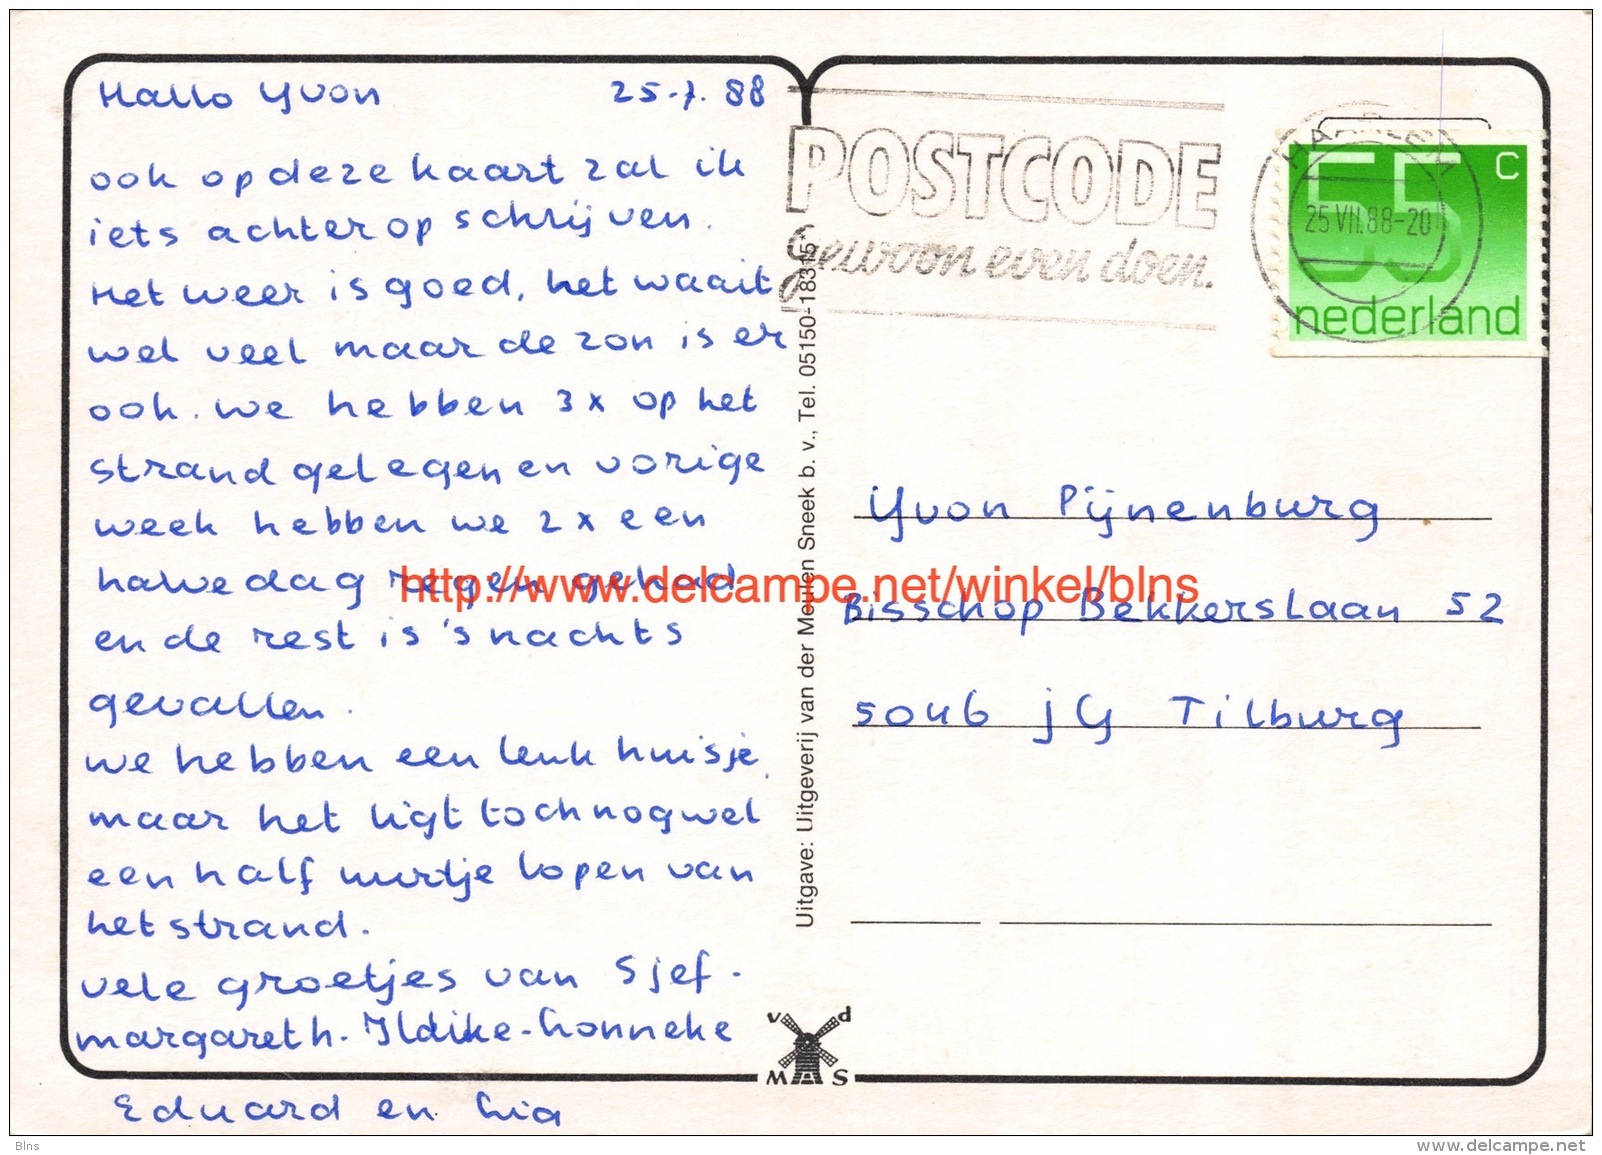 Hallo Yvon 25.7.88
ook op deze kaart zal ik
iets achterop schrijven.
Het weer is goed, het waait
wel veel maar de zon is er
ook. we hebben 3x op het
strand gelegen en vorige
week hebben we 2x een
halve dag regen gehad
en de rest is 's nachts
gevallen.
we hebben een leuk huisje,
maar het ligt toch nog wel
een half uurtje lopen van
het strand.
vele groetjes van Sjef-
margareth-Ildike-Lonneke
Eduard en Lia
POSTCODE
gewoon even doen.
HAARLEM
25 VII.88-20
55 c
nederland
Uitgave: Uitgeverij van der Meulen Sneek b. v., Tel. 05150-18315*
Yvon Pijnenburg
Bisschop Bekkerslaan 52
5046 JG Tilburg
http://www.delcampe.net/winkel/blns
v d
M S
Blns
www.delcampe.net